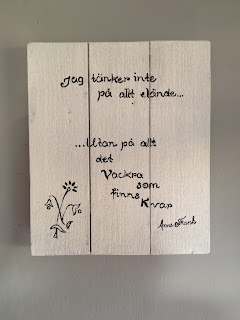 Jag tänker inte
på allt elände...
...Utan på allt
det
Vackra
som
finns
Kvar
Anne Frank